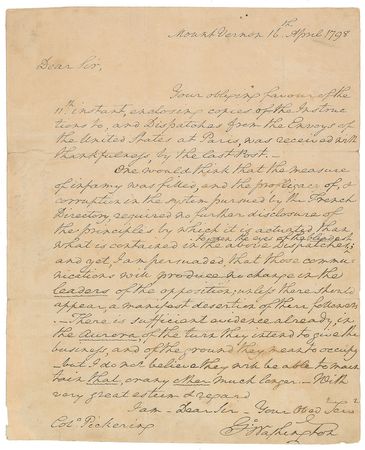 Mount Vernon 16th April 1798
Dear Sir,
Your obliging favour of the
11th instant, enclosing copies of the Instruc
tions to, and Dispatches from the Envoys of
the United States at Paris, was received with
thankfulness, by the last Post.—
One would think that the measure
of infamy was filled, and the profligacy of, &
corruption in the system pursued by the French
Directory, required no further disclosure of
the principles by which it is actuated than
what is contained in the above Dispatches;
to open the eyes of the blindest
and yet, I am persuaded that those commu-
nications will produce no change in the
leaders of the opposition; unless there should
appear a manifest desertion of their followers.
—There is sufficient evidence already, in
the Aurora, of the turn they intend to give the
business, and of the ground they mean to occupy
—but I do not believe they will be able to main
tain that, or any other much longer.—With
very great esteem & regard
I am—Dear Sir—Your Obed Serv
Colo Pickering
Go Washington